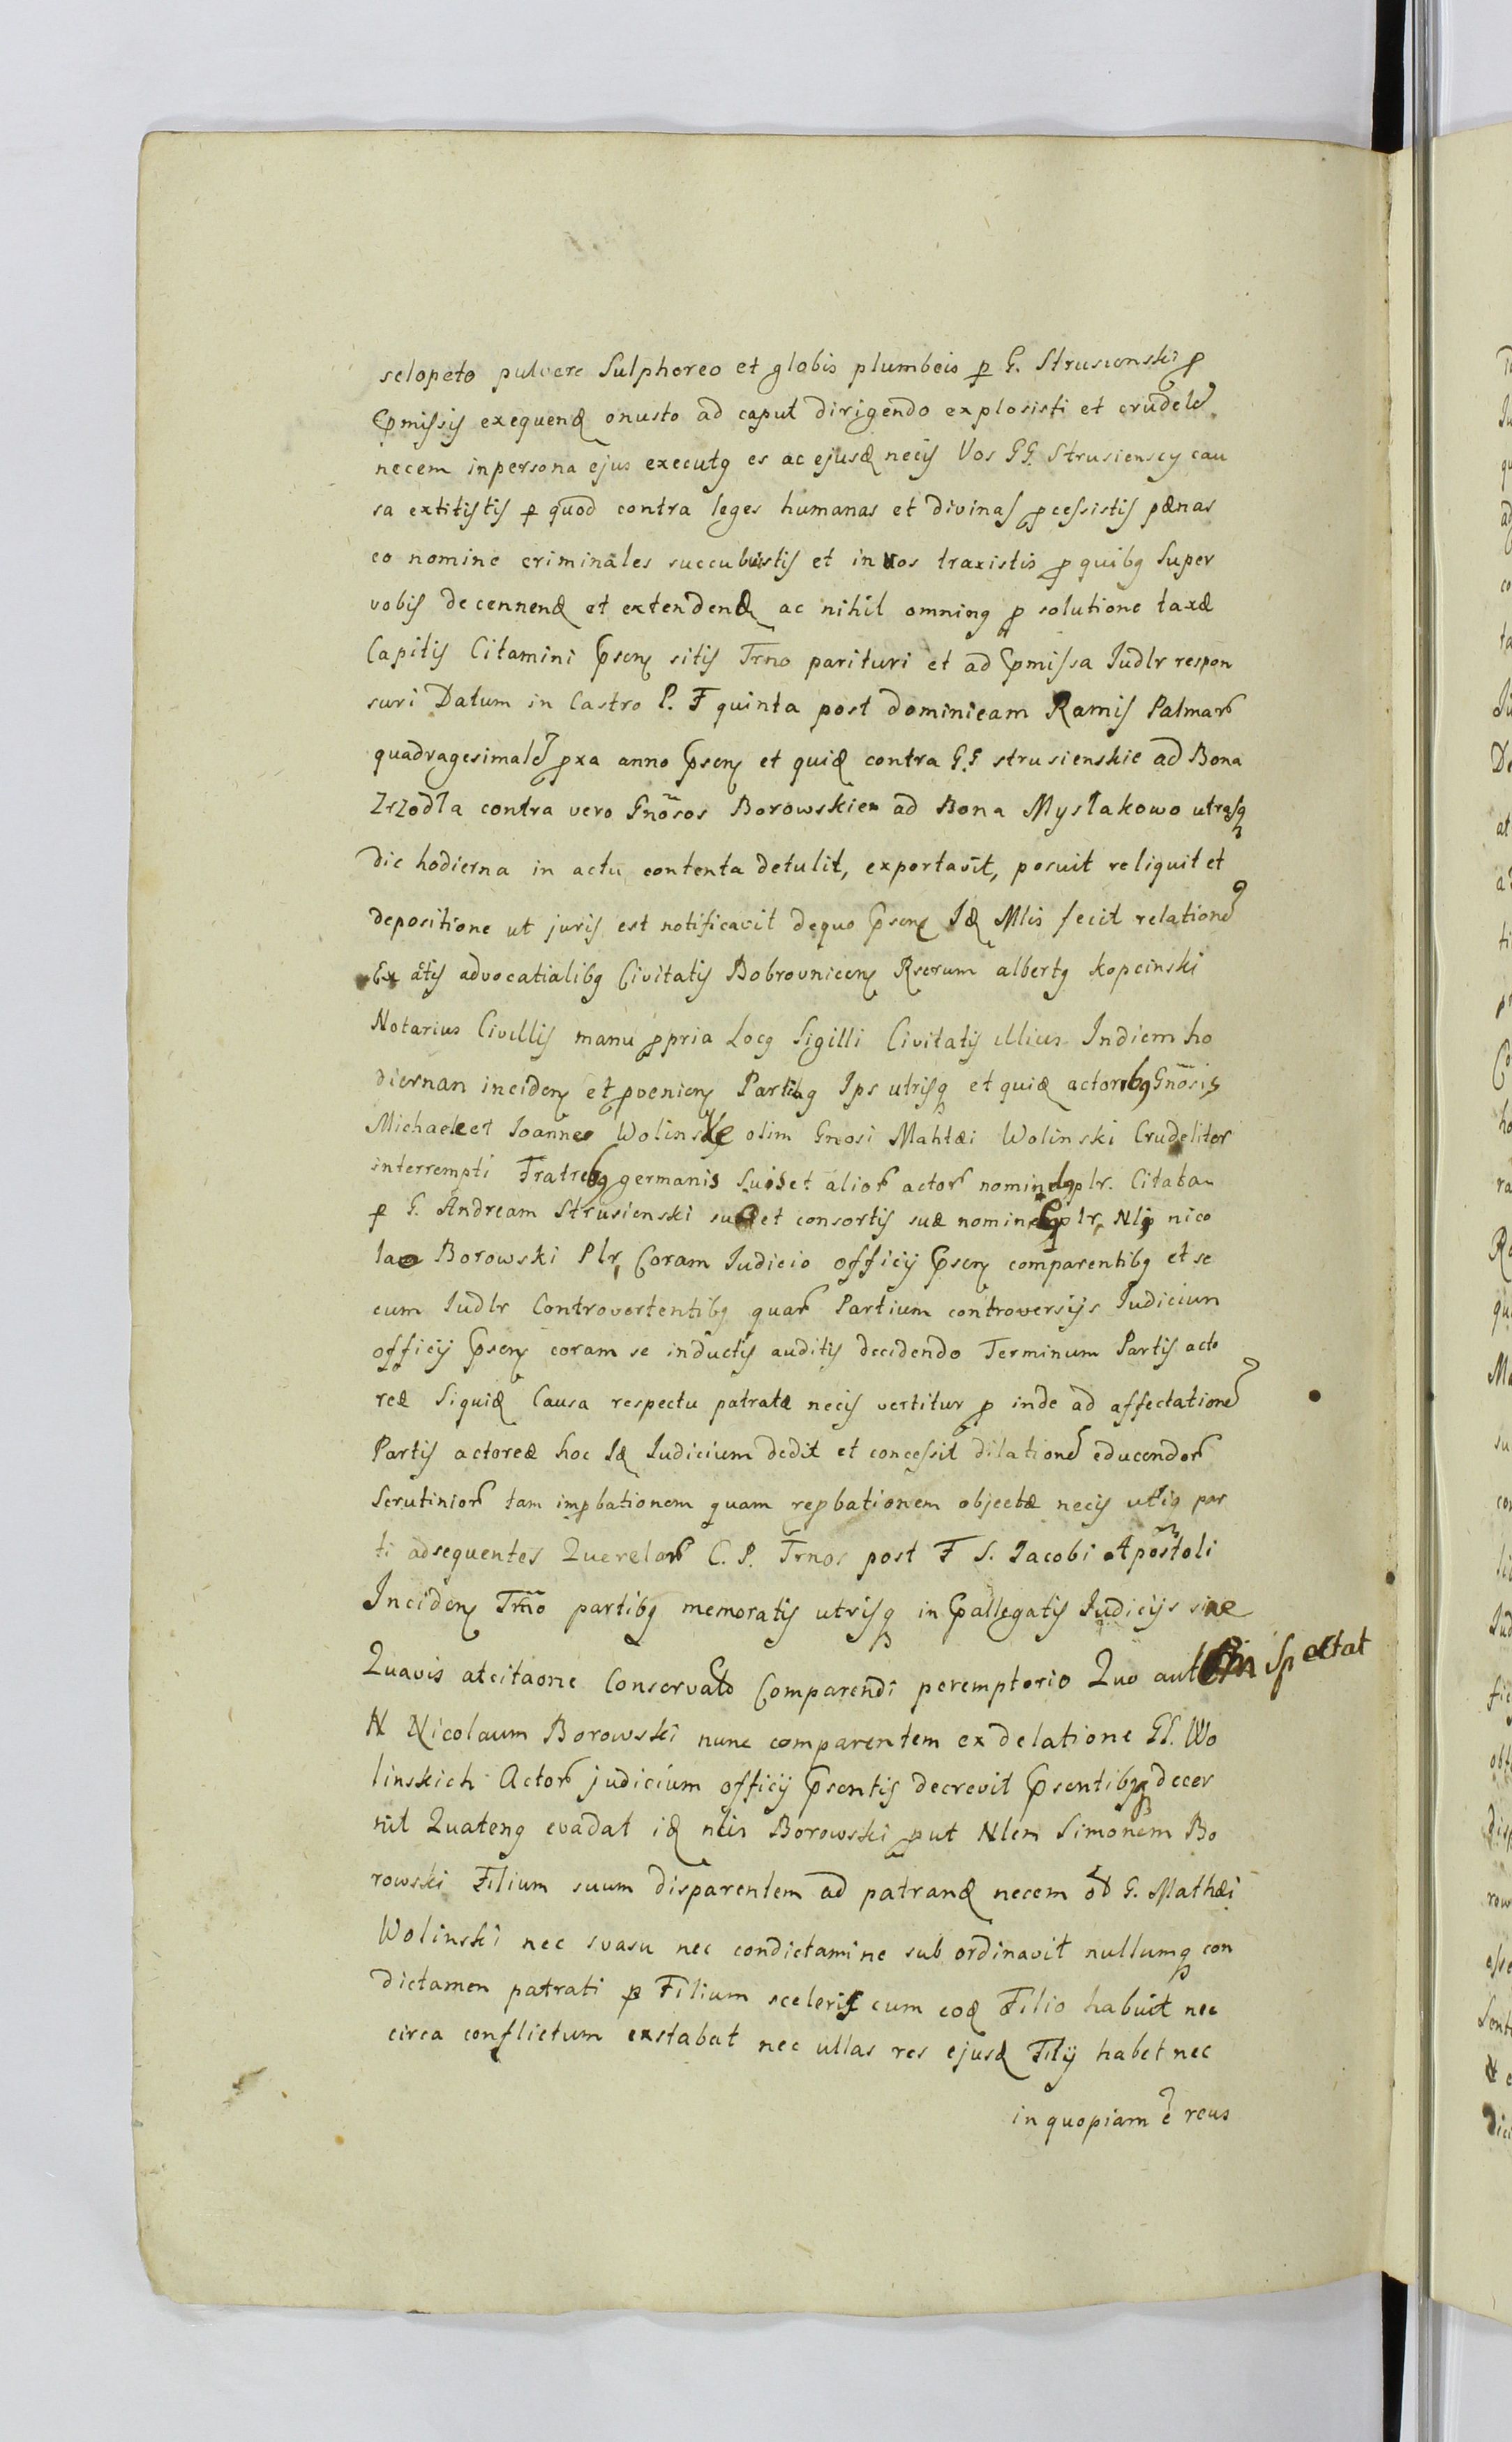 sclopeto pulvere Sulphoreo et globis plumbeis p G. Strusienski p
pmissis exequend onusto ad caput dirigendo explosisti et crudele
necem inpersona ejus executq es ac ejusd necis Vos GG. Strusienscy cau
sa extitistis p quod contra leges humanas et divinas pcessistis pænas
eo nomine criminales succubuistis et in vos traxistis p quibq Super
vobis decennend et extendend ac nihil omninq p solutione taxæ
Capitis Citamini psen sitis Trno parituri et ad pmissa Iudlr respon
suri Datum in Castro P. F quinta post dominicam Ramis Palmar
quadragesimale pxa anno psen et quid contra G.G strusienskie ad Bona
Zrzodła contra vero Gnosos Borowskie ad Bona Mysłakowo utrasq
die hodierna in actu contenta detulit, exportavit, posuit reliquit et
depositione ut juris est notificavit dequo psen Id Mlis fecit relatione
Ex actis advocatialibq Civitatis Bobrovnicen Rserum albertq kopcinski
Notarius Civillis manu ppria Locq Sigilli Civitatis illius Indiem ho
diernan inciden et pvenien Partibq Ips utrisq et quid actoribq Gnosis
Michaele et Ioanne Wolinskie olim Gnosi Mahtæi Wolinski Crudeliter
interrempti Fratribq germanis Suis et alior actor nomine plr. Citata
p G. Andream Strusienski suo et consortis suæ nomine plr, Nlj nico
lao Borowski Plr, Coram Iudicio officij psen comparentibq et se
cum Iudlr Controvertentibq quar Partium controversijs Iudicium
officij psen coram se inductis auditis decidendo Terminum Partis acto
reæ Siquid Causa respectu patratæ necis vertitur p inde ad affectatione
Partis actoreæ hoc Id Iudicium dedit et concessit dilatione educendor
Scrutinior tam impbationem quam repbationem objectæ necis utis par
ti adsequentes Querelar C. P. Trnos post F S. Iacobi Apostoli
Inciden Trno partibq memoratis utrisq in pallegatis Iudicijs sine
Quavis atcitaone Conservato Comparendi peremptorio Quo autem Spectat
N Nicolaum Borowski nunc comparentem ex delatione GG. Wo
linskich Actor judicium officij psentis decrevit psentibq decer
nit Quatenq evadat id nlis Borowski put Nlem Simonem Bo
rowski Filium suum disparentem ad patrand necem G. Mathæi
Wolinski nec svasu nec condictamine sub ordinavit nullumq con
dictamen patrati p Filium sceleris cum eod Filio habuit nec
circa conflictum exstabat nec ullas res ejusd Filij habet nec
in quopiam e reus